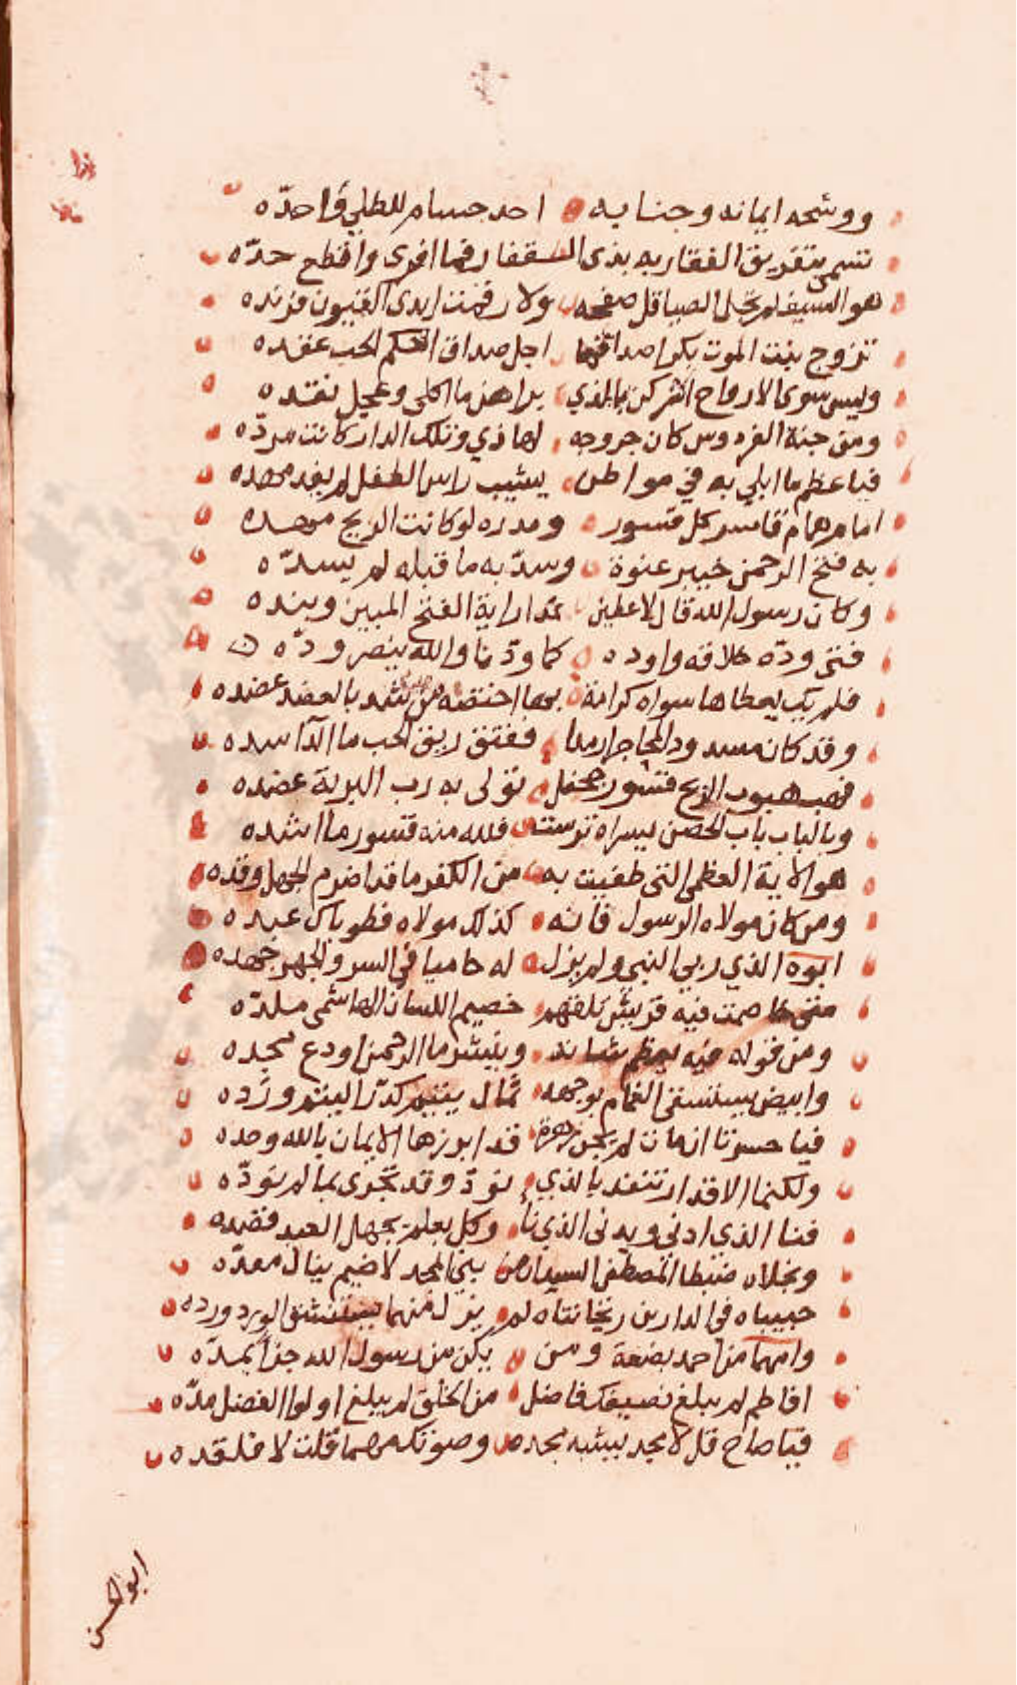 ووشحه ايمانه وجنابه احد حسام للطلى واحده
تسمى بتفريق الفقار به بذى الفقار فما افرى واقطع حده
هو السيف لم تجل الصياقل صفحه ولا رقمت ايدى القيون فرنده
تزوج بنت الموت بكرا اجل صداق احكم الحب عقده
وليس سوى الارواح بالذي يراهن ما اكلى وعجل نقده
ومن جنة الفردوس كان خروجه لها ذي وتلك الدار كانت مردّه
فيا عظم ما ابلى به في مواطن يشيب راس الطفل لم يغد مهده
امام همام قاسر كل قسور ومدره لو كانت الريح
به فتح الرحمن خيبر عنوة وسدّ به ما قبله لم يسدّه
وكان رسول الله قال لاعطين غدا راية الفتح المبين وبنده
فتى ودّه خلاقه واوده كما ودّنا والله ينصر ودّه
فلم يك يعطاها سواه كرامة بها اختصه من شد بالعضد عضده
وقد كان مسدود المحاجر ارمدا ففتق ريق الحب ما الدآ سده
فهب هبوب الريح قسور جحفل تولى به رب البرية عضده
وبالباب باب الحصن يسراه ترست فلله منه قسور ما اشده
هو الاية العظمى التى طفيت به من الكفر ما قد اضرم الجهل وقده
ومن كان مولاه الرسول فانه كذلك مولاه فطوباك عبده
ابوه الذي ربى النبي ولم يزل له حاميا في السر والجهر جهده
متى خاصمت فيه قريش تلقهم خصيم اللسان الهاشمى ملدّه
ومن قوله فيه يعظم شانه وينشر ما الرحمن اودع مجده
وابيض يستسقى الغمام بوجهه ثمال يتيم كدّر اليتم ورده
فيا حسرتا ان مات لم يجن زهرة قد ابرزها الايمان بالله وحده
ولكنما الاقدار تنفذ بالذي تودّ وقد تجرى بما لم تودّه
فنا الذي ادنى ويدنى الذي نأ وكل بعلم يجهل العبد قصده
ونجلاه ضبطا المصطفى السيدان من بنى المجد لا ضيم ينال معدّه
حبيباه فى الدارين ريحانتاه لم يزل منهما يستنشق الورد ورده
وامهما من احمد بضعة ومن يكن من رسول الله جزأ يمدّه
افاطم لم يبلغ نصيفك فاضل من الخلق لم يبلغ اولوا الفضل مدّه
فيا صاح قل لا مجد يشبه مجدهم وصوتك مهما قلت لا فلقده
ابو الحسن